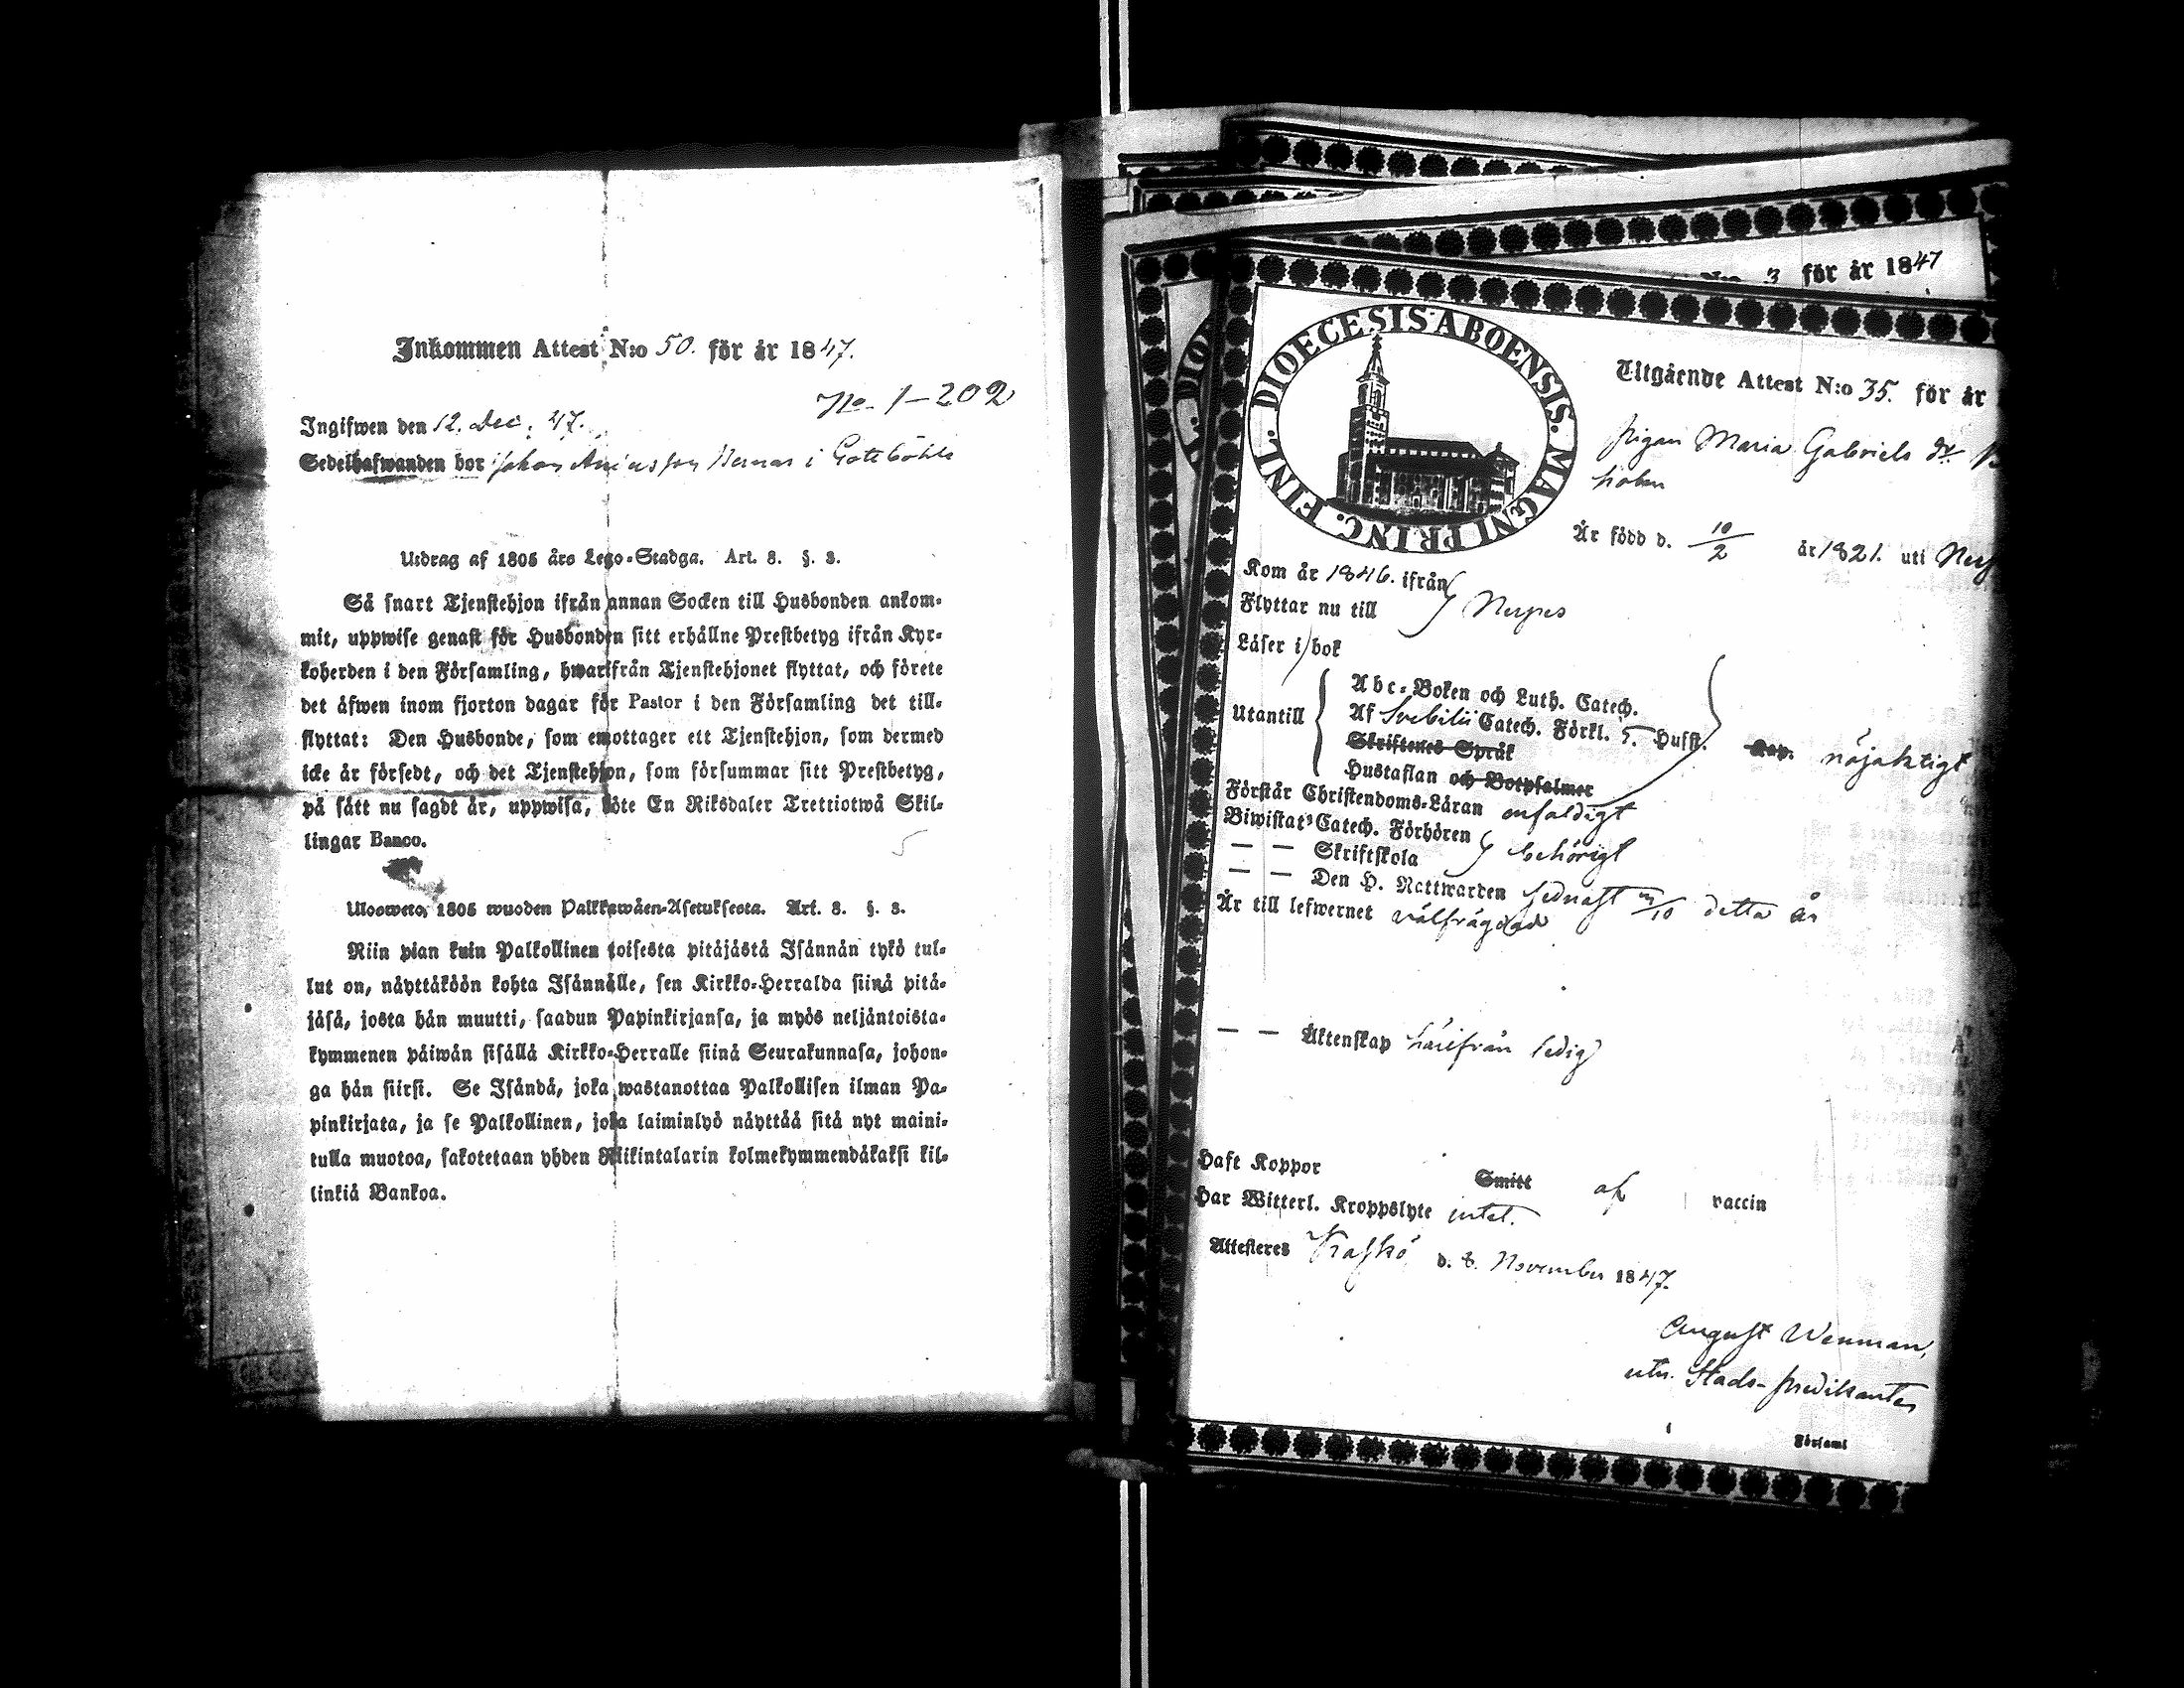 Inkommen Attest N:o 50. för år 1847.
No 1-202
Ingifwen den 12. Dec. 47.
Sedelhafwanden bor Johan i Gottböhle
Utdrag af 1805 års Lego-Stadga. Art. 8. §. 3.
Så snart Tjenstehjon ifrån annan Socken till Husbonden ankom-
mit, uppwise genast för Husbonden sitt erhållne Prestbetyg ifrån Kyr-
koherden i den Församling, hwarifrån Tjenstehjonet flyttat, och förete
det äfwen inom fjorton dagar för Pastor i den Församling det till-
flyttat: Den Husbonde, som emottager ett Tjenstehjon, som dermed
icke är försedt, och det Tjenstehjon, som försummar sitt Prestbetyg,
på sätt nu sagdt är, uppwisa, böte En Riksdaler Tretriotwå Skil-
lingar Banco.
Uloswcto, 1805 wuoden Palkkawäen-Asetuksesta. Art. 8. §. 3.
Niin pian kuin Palkollinen toisesta pitäjästä Isännän tykö tul-
lut on, näyttäköön kohta Isännälle, sen Kirkko-Herralda siinä pitä-
jäsä, josta hän muutti, saadun Papinkirjansa, ja myös neljäntoista-
kymmenen päiwän sisällä Kirkko-Herralle siinä Seurakunnasa, johon-
ga hän siirsi. Se Isändä, joka wastanottaa Palkollisen ilman Pa-
pinkirjata, ja se Palkollinen, joka laiminlyö näyttää sitä nyt maini-
tulla muotoa, sakotetaan yhden Riikintalarin kolmekymmendäkaksi kil-
linkiä Bankoa.
3 för år 1847
DIOECESIS ABOENSIS. MAGNI PRINC. FINL.
Utgående Attest N:o 35. för år
Pigan Maria Gabriels dr
holm
Är född d. 10/2 år 1821. uti
Kom år 1846. ifrån
Flyttar nu till } Nerpes
Läser i bok
Utantill
Abc-Boken och Luth. Catech.
Af Svebilii Catech. Förkl. 5. Hufst.
Skriftenes Språk
Hustaflan och Botpsalmer
Kap. nöjaktigt
Förstår Christendoms-Läran enfaldigt
Biwistat Catech. Förhören
— — Skriftskola } behörigt
— — Den H. Nattwarden sednast /10 detta år
Är till lefwernet välfrägdad
— — Äktenskap härifrån ledig
Haft Koppor Smitt af vaccin
Har Witterl. Kroppslyte intet.
Attesteres Kaskö d. 8. November 1847.
August Wenman,
utn. Stads-predikanten
Församl